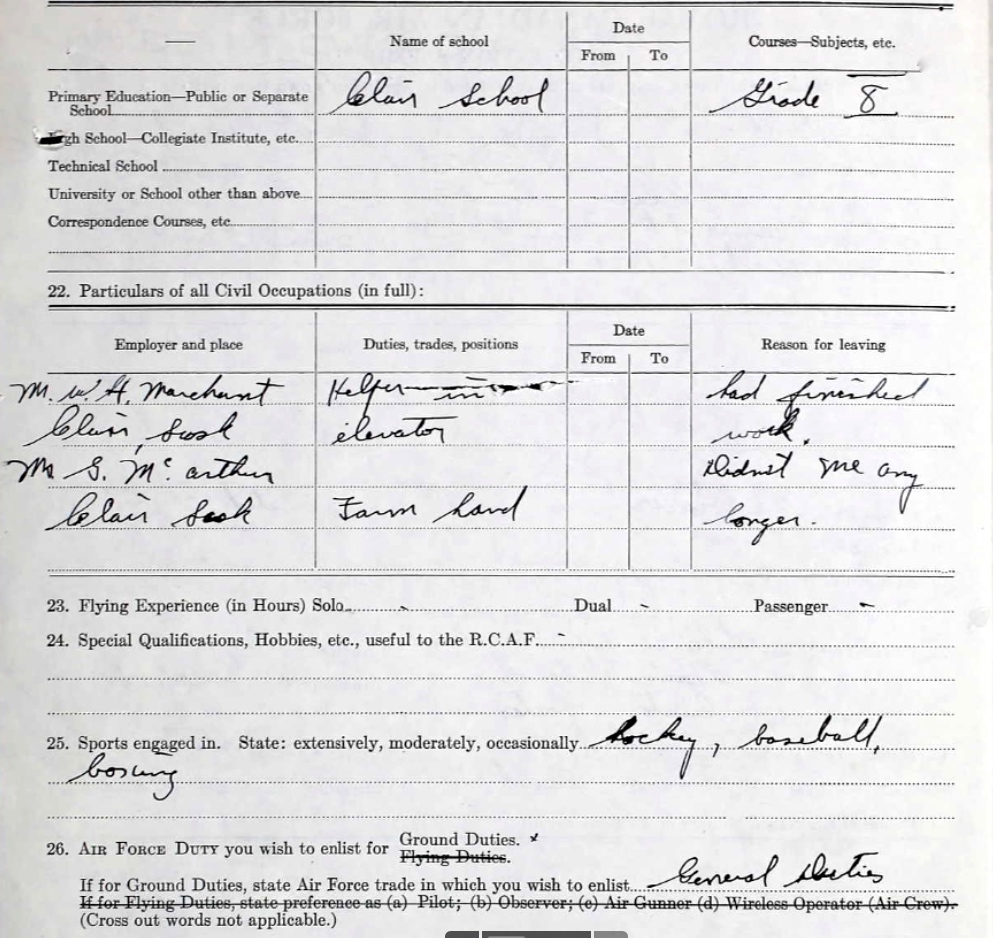 Name of school Date Courses—Subjects, etc.
From To
Primary Education—Public or Separate School Clair School Grade 8
High School—Collegiate Institute, etc.
Technical School
University or School other than above
Correspondence Courses, etc
22. Particulars of all Civil Occupations (in full):
Employer and place Duties, trades, positions Date Reason for leaving
From To
M. W. H. Marchant Helper in had finished
Clair, Sask elevator work.
Mr S. Mc arthur Didnst me any
Clair Sask Farm hand longer.
23. Flying Experience (in Hours) Solo - Dual - Passenger -
24. Special Qualifications, Hobbies, etc., useful to the R.C.A.F. -
25. Sports engaged in. State: extensively, moderately, occasionally hockey, baseball,
boxing
26. AIR FORCE DUTY you wish to enlist for Ground Duties. x
Flying Duties.
If for Ground Duties, state Air Force trade in which you wish to enlist General Duties
If for Flying Duties, state preference as (a) Pilot; (b) Observer; (c) Air Gunner (d) Wireless Operator (Air Crew).
(Cross out words not applicable.)